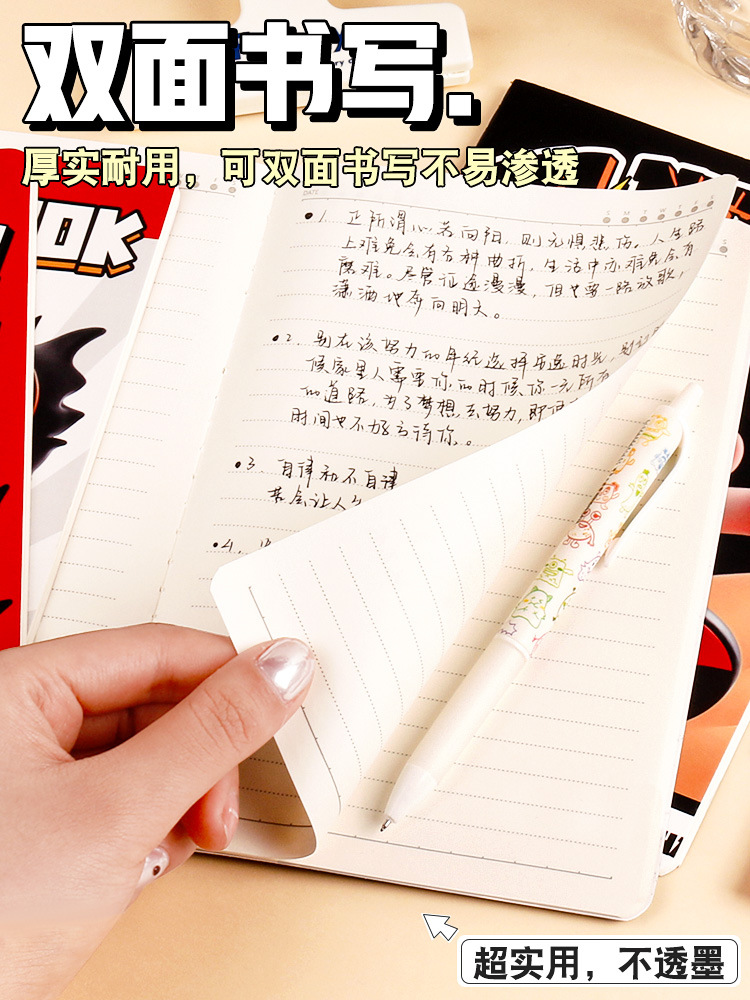 双面书写.
厚实耐用，可双面书写不易渗透
OK
DATE
S M T W T F S
●1. 正所谓心若向阳，则无惧悲伤。人生路
上难免会有各种曲折，生活中亦难免会有
磨难。尽管征途漫漫，但也要一路放歌，
潇洒地奔向明天。
●2. 别在该努力的年纪选择安逸
候家里人需要你的时候你一无所有
的道路，为了梦想，去努力，即使
时间也不够
●3. 自律和不自律
●4.
超实用，不透墨